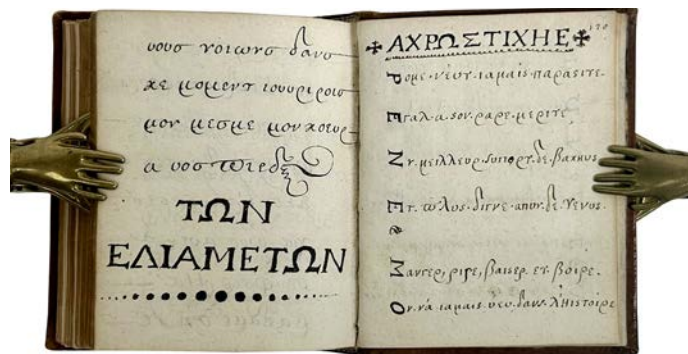 υουσ νοιωνσ δανσ
χε μομεντ ιουυριροισ
μον μεσμε μον χοευρ
α υοσ πιεδζ
ΤΩΝ
ΕΔΙΑΜΕΤΩΝ
ΑΧΡΩΣΤΙΧΗΕ
Ρομε·ν'ευτ·ιαμαισ·παρασιτε.
Εγαλ·α·σον·ραρε·μεριτε
Νυ·μειλλευρ·συπορτ·δε·βακχυσ
Ετ·πλυσ·διγνε·απυυ·δε·Υενυσ.
&
Μανγερ, ριρε, βαισερ, ετ·βοιρε.
Ον·να·ιαμαισ·υευ·δανσ·λΗιστοιρε